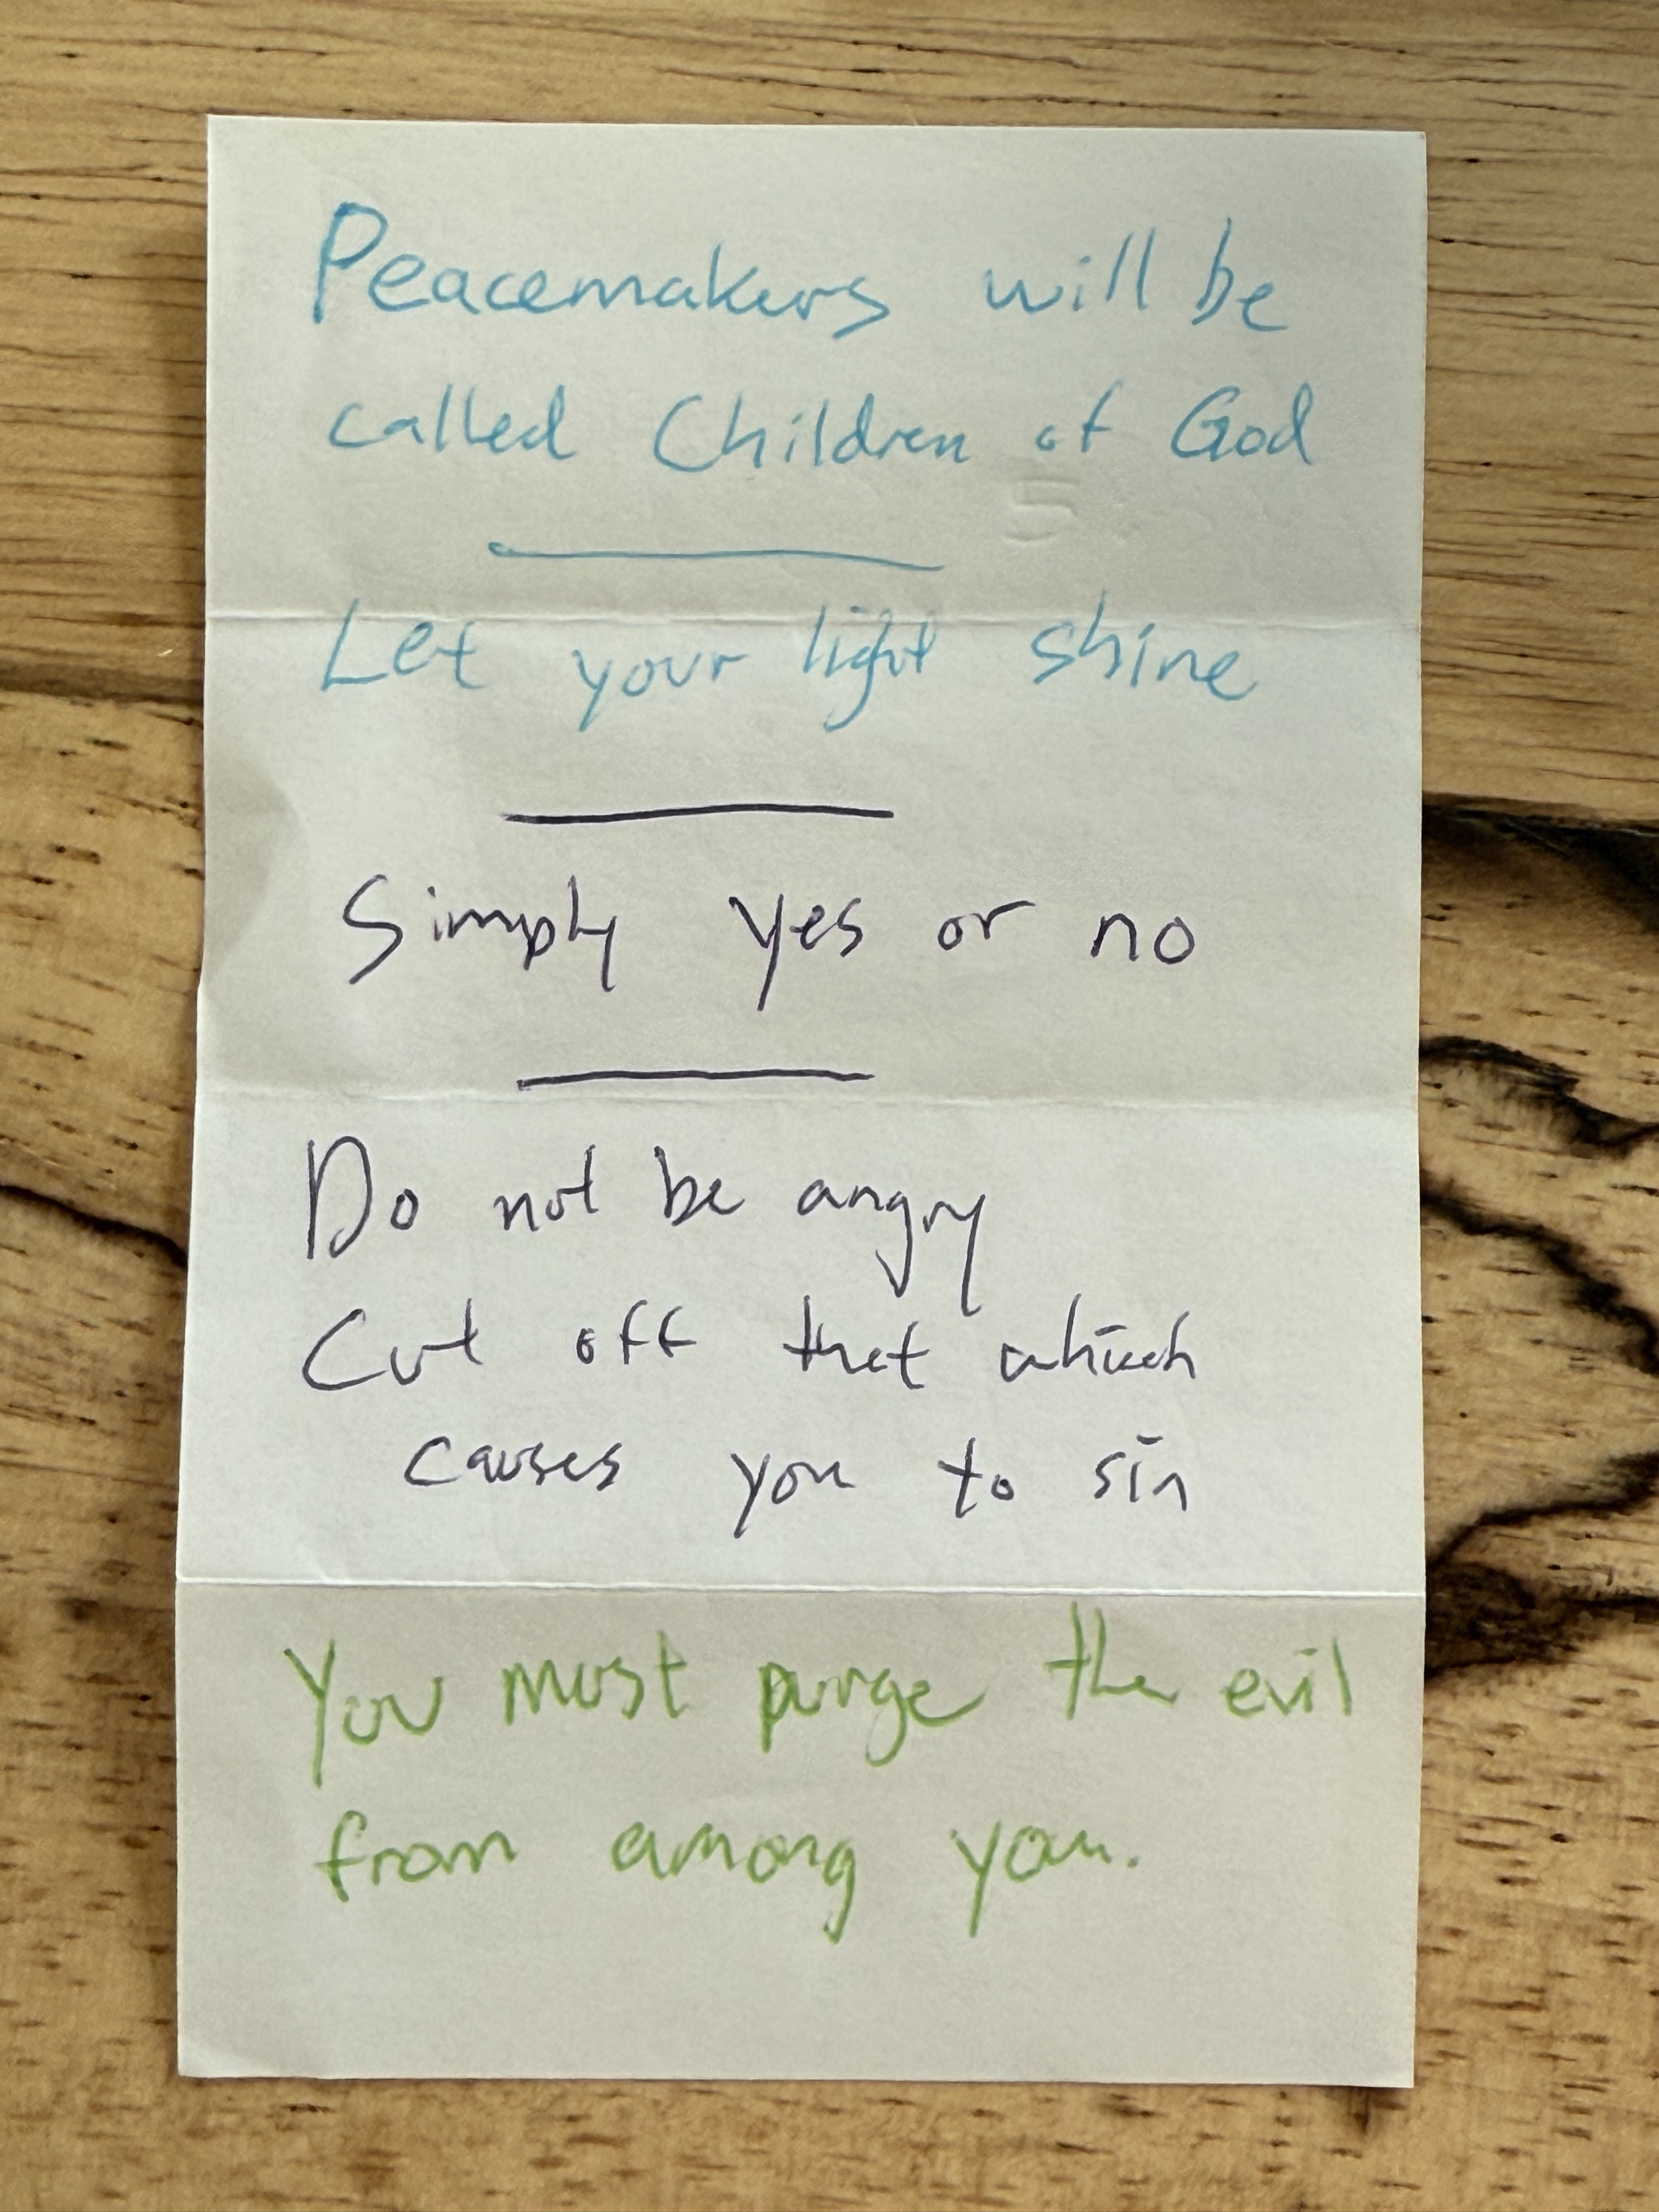 Peacemakers will be
called Children of God
5
Let your light shine
Simply yes or no
Do not be angry
Cut off that which
causes you to sin
You must purge the evil
from among you.